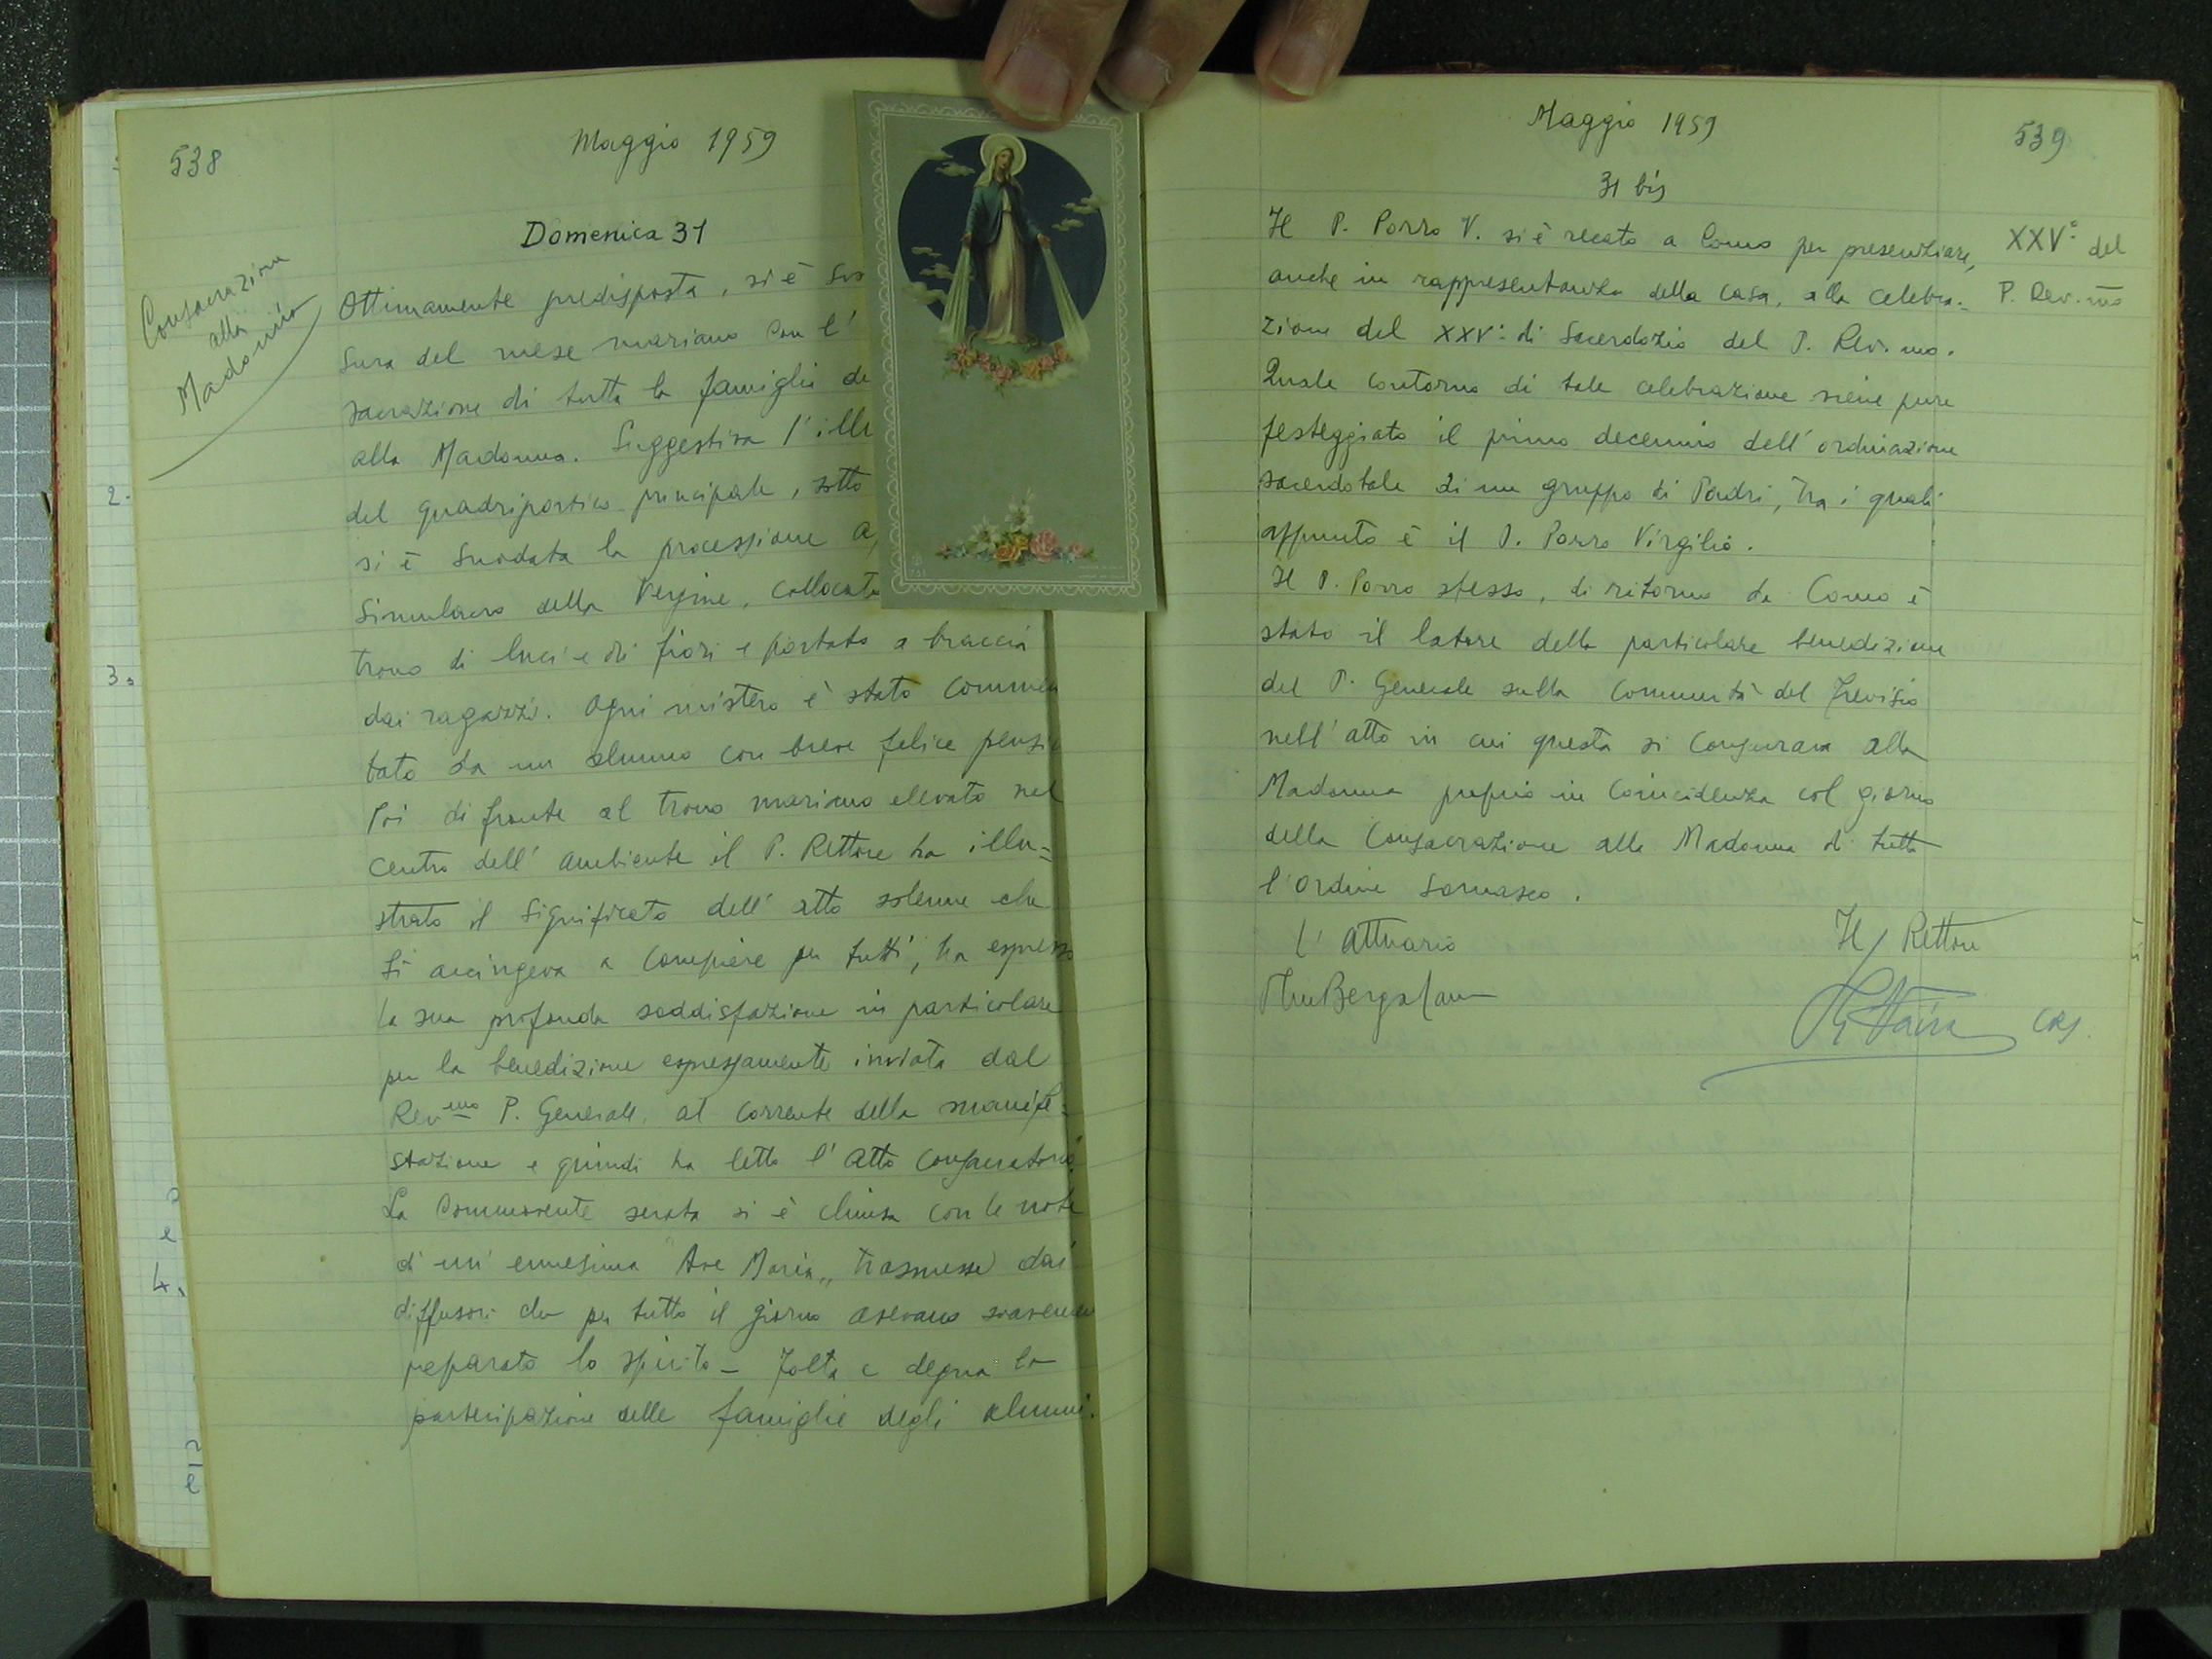 538
Maggio 1959
Domenica 31
Consacrazione
alla
Madonna
Ottimamente predisposta, si è
sura del mese mariano con l'
sacrazione di tutta la famiglia de
alla Madonna. Suggestiva l'illu
del quadriportico principale, sotto
si è snodata la processione
Simulacro della Vergine, collocato
trono di luci e di fiori e portato a braccia
dai ragazzi. Ogni mistero è stato commen
tato da un alunno con breve felice pensie
Poi di fronte al trono mariano elevato nel
centro dell'ambiente il P. Rettore ha illu=
strato il significato dell'atto solenne che
si accingeva a compiere per tutti, ha espresso
la sua profonda soddisfazione in particolare
per la benedizione espressamente inviata dal
Rev.mo P. Generale, al corrente della manife=
stazione e quindi ha letto l'atto consacratorio.
La commovente serata si è chiusa con le note
di un'ennesima Ave Maria,, trasmesse dai
diffusori che per tutto il giorno avevano soavemen
preparato lo spirito - Folta e degna la
partecipazione delle famiglie degli alunni.
2.
3.
e
4.
Maggio 1959
539
31 bis
Il P. Porro V. si è recato a Como per presenziare,
anche in rappresentanza della casa, alla celebra-
zione del XXV° di Sacerdozio del P. Rev.mo.
Quale contorno di tale celebrazione viene pure
festeggiato il primo decennio dell'ordinazione
sacerdotale di un gruppo di Padri, tra i quali
appunto è il P. Porro Virgilio.
Il P. Porro stesso, di ritorno da Como è
stato il latore della particolare benedizione
del P. Generale sulla Comunità del Trevisio
nell'atto in cui questa si consacrava alla
Madonna proprio in coincidenza col giorno
della Consacrazione alla Madonna di tutto
l'Ordine Somasco.
XXV° del
P. Rev.mo
l'Attuario
Il Rettore
CRS.